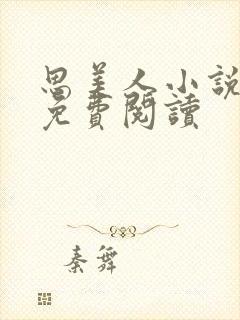 思美人小説
免費閱讀
秦舞